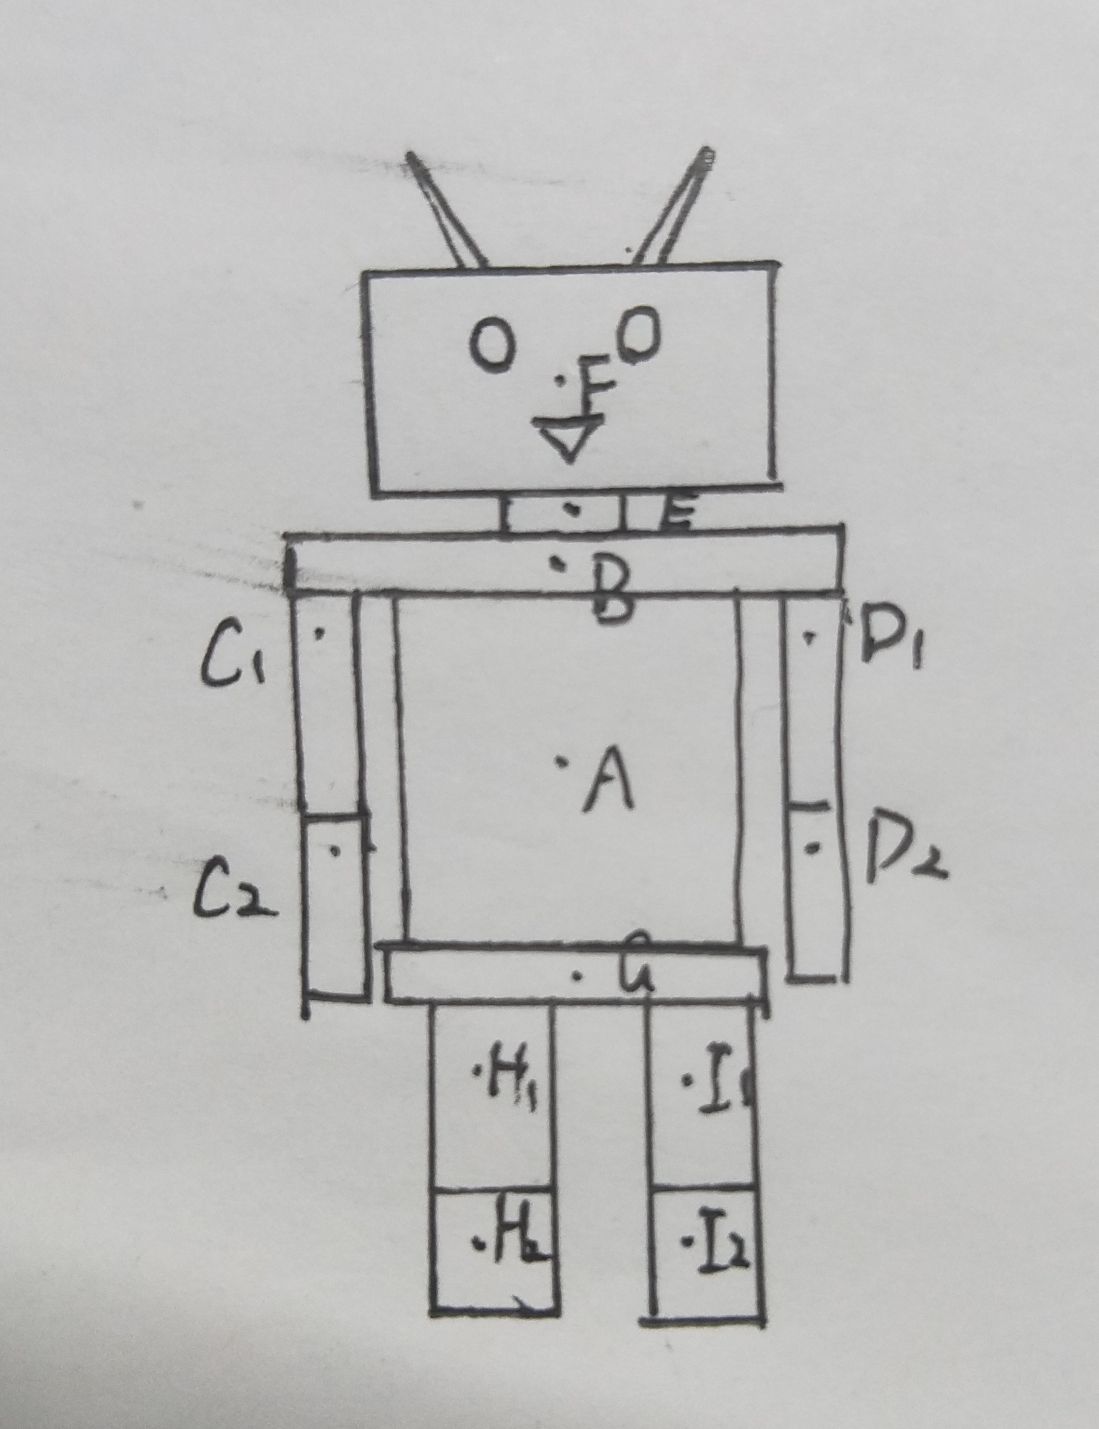 F
E
B
C1
D1
A
C2
D2
G
H1
I1
H2
I2